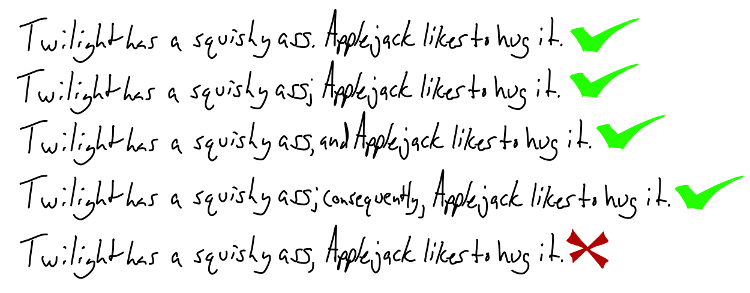 Twilight has a squishy ass. Applejack likes to hug it.
Twilight has a squishy ass; Applejack likes to hug it.
Twilight has a squishy ass, and Applejack likes to hug it.
Twilight has a squishy ass; consequently, Applejack likes to hug it.
Twilight has a squishy ass, Applejack likes to hug it.